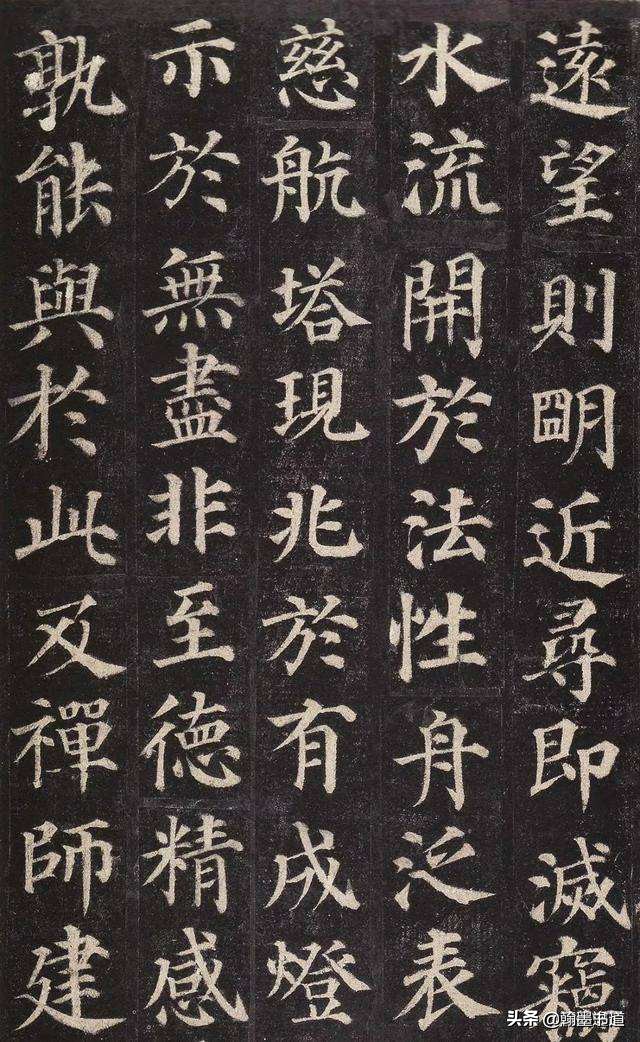 遠望則明近尋即滅竊
水流開於法性舟泛表
慈航塔現兆於有成燈
示於無盡非至德精感
孰能與於此及禪師建
头条 @翰墨书道